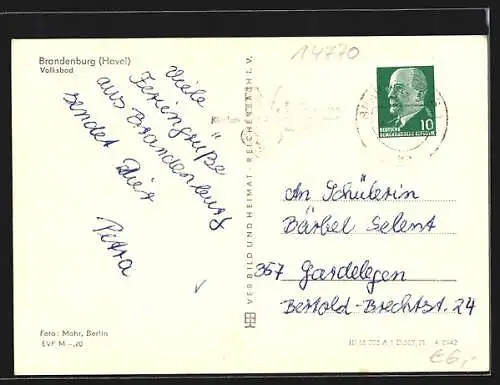 Brandenburg (Havel)
Volksbad
Viele
Feriengrüße
aus Brandenburg
sendet Dir
Petra
Foto: Mahr, Berlin
EVP M -,20
VEB BILD UND HEIMAT · REICHENBACH I. V.
14770
10
DEUTSCHE
DEMOKRATISCHE REPUBLIK
An Schülerin
Bärbel Selent
357 Gardelegen
Bertold-Brechtstr. 24
€6,-